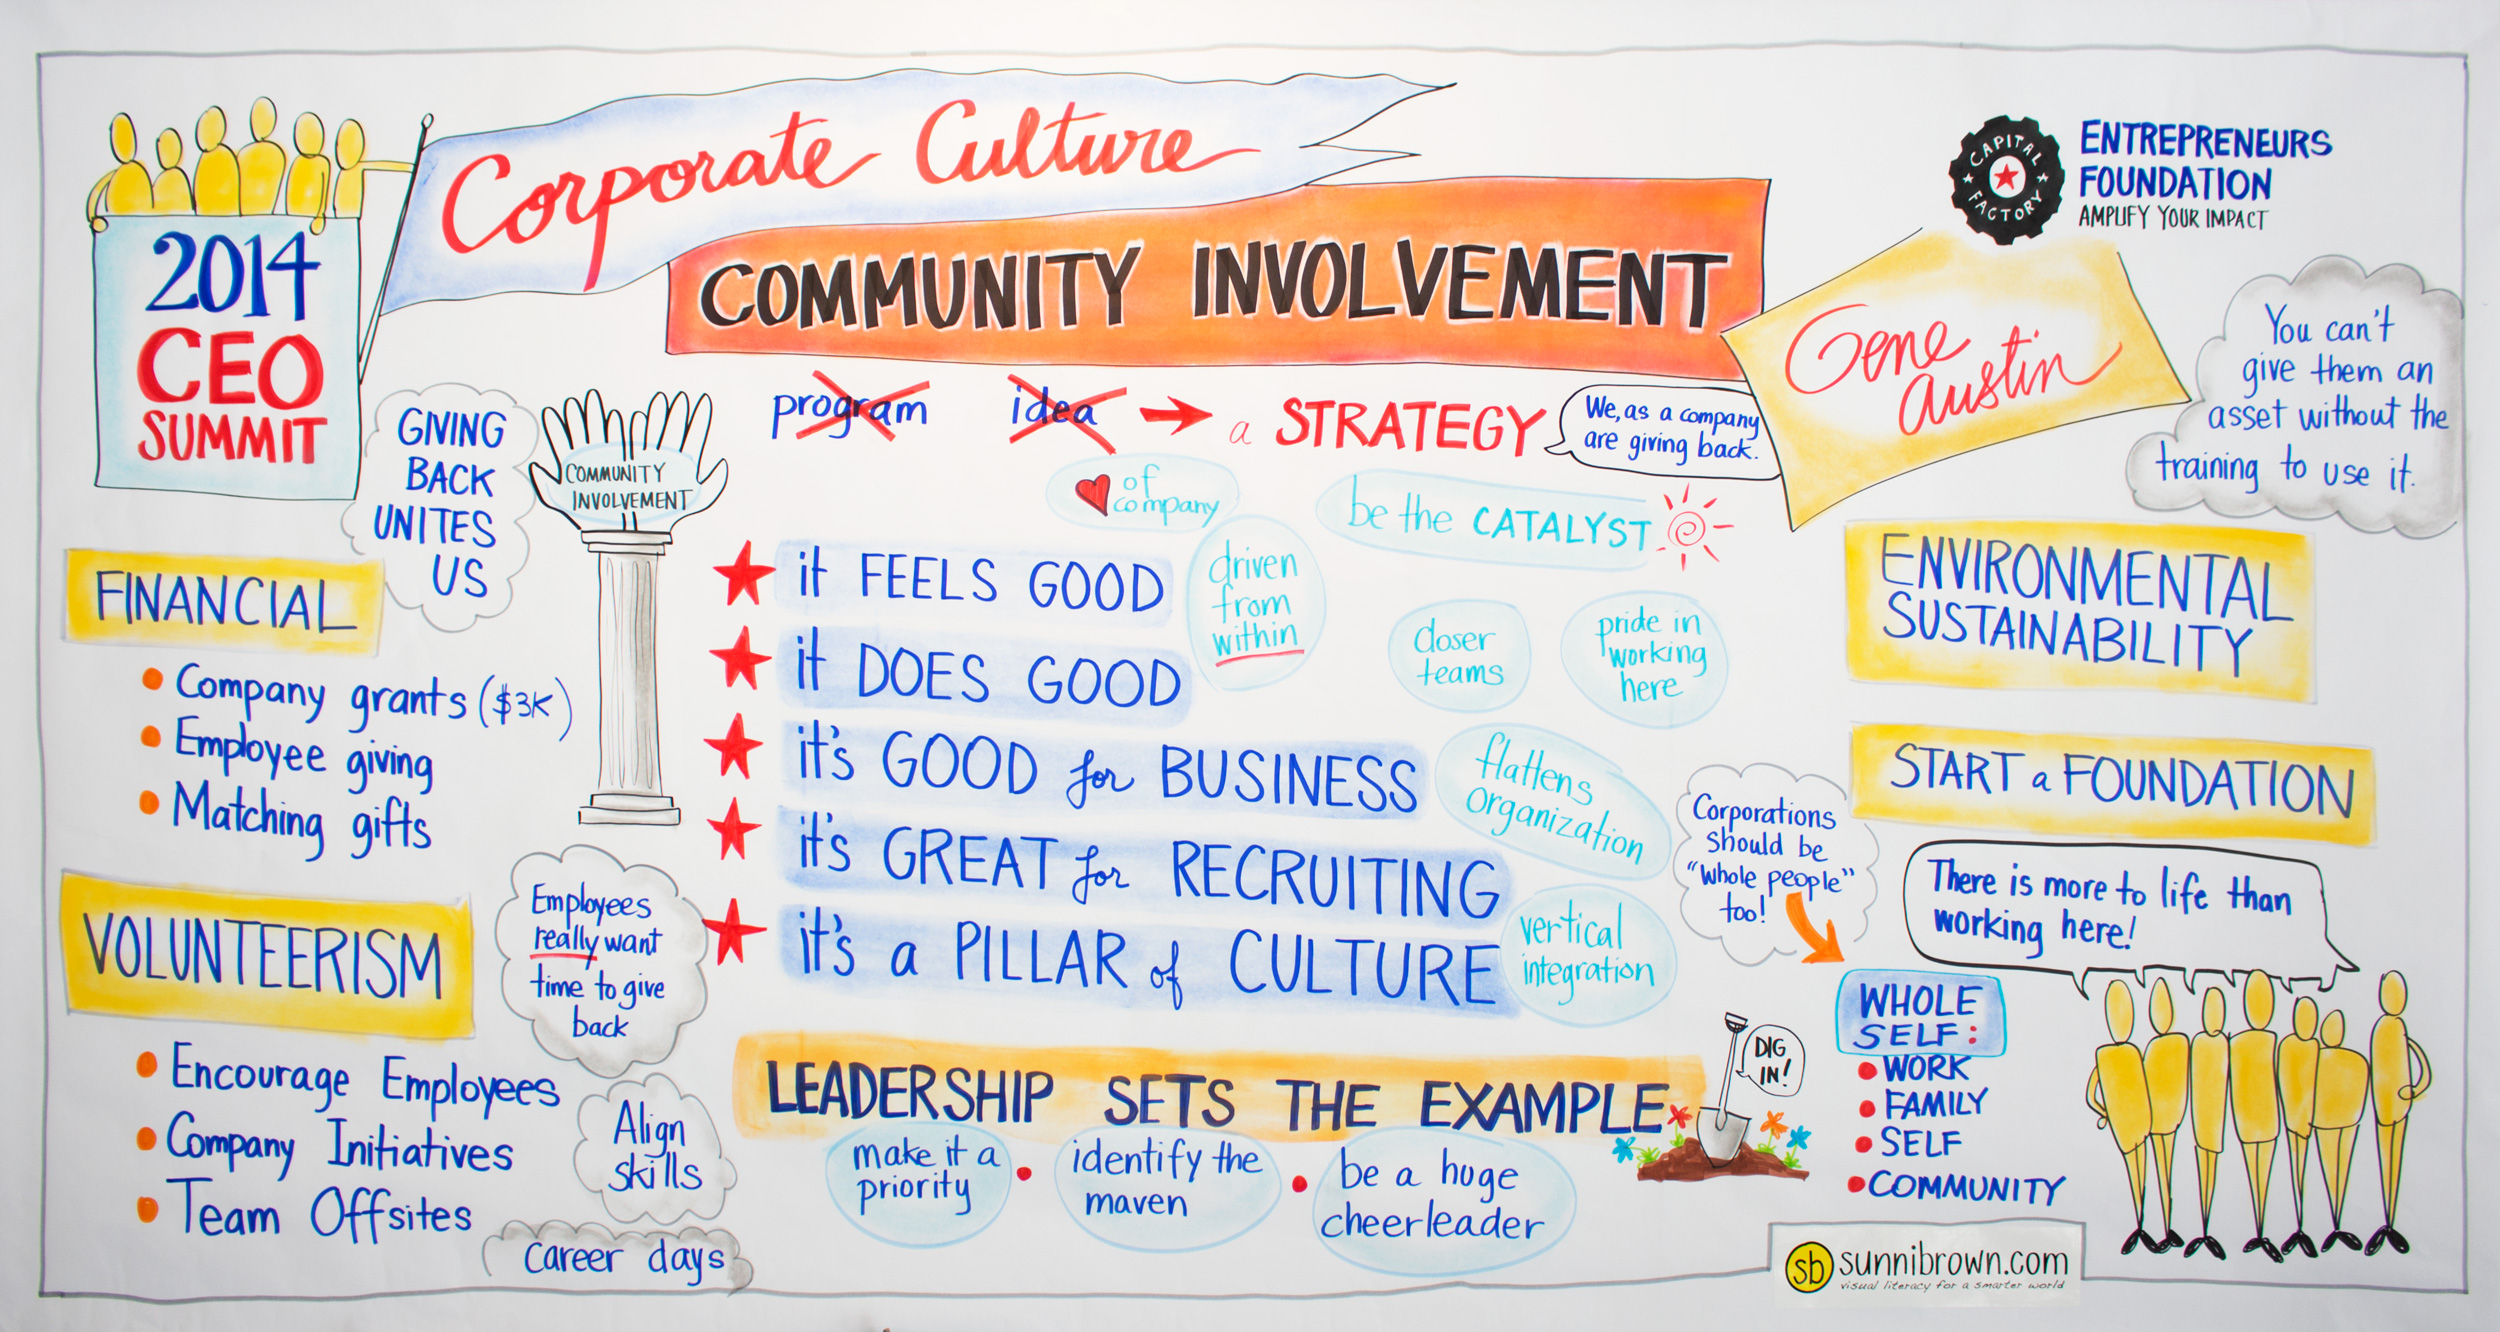 2014
CEO
SUMMIT
Corporate Culture
COMMUNITY INVOLVEMENT
CAPITAL
FACTORY
ENTREPRENEURS
FOUNDATION
AMPLIFY YOUR IMPACT
Gene
Austin
You can't
give them an
asset without the
training to use it.
GIVING
BACK
UNITES
US
COMMUNITY
INVOLVEMENT
program idea a STRATEGY
We, as a company
are giving back.
of
company
be the CATALYST
FINANCIAL
Company grants ($3K)
Employee giving
Matching gifts
VOLUNTEERISM
Encourage Employees
Company Initiatives
Team Offsites
Employees
really want
time to give
back
Align
skills
Career days
it FEELS GOOD
it DOES GOOD
it's GOOD for BUSINESS
it's GREAT for RECRUITING
it's a PILLAR of CULTURE
driven
from
within
closer
teams
pride in
working
here
flattens
organization
vertical
integration
LEADERSHIP SETS THE EXAMPLE
make it a
priority
identify the
maven
be a huge
cheerleader
DIG
IN!
ENVIRONMENTAL
SUSTAINABILITY
START a FOUNDATION
Corporations
should be
"whole people"
too!
There is more to life than
working here!
WHOLE
SELF:
WORK
FAMILY
SELF
COMMUNITY
sb sunnibrown.com
visual literacy for a smarter world